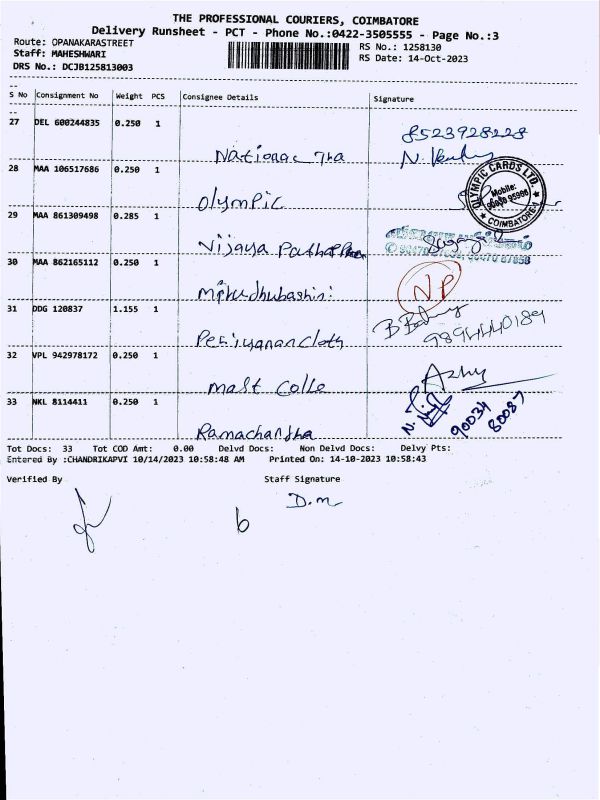 THE PROFESSIONAL COURIERS, COIMBATORE
Delivery Runsheet - PCT - Phone No.:0422-3505555 - Page No.:3
Route: OPANAKARASTREET
RS No.: 1258130
Staff: MAHESHWARI
RS Date: 14-Oct-2023
DRS No.: DCJB125813003
S No Consignment No Weight PCS Consignee Details Signature
27 DEL 600244835 0.250 1 8523928228
National Tra
28 MAA 106517686 0.250 1
Olympic
OLYMPIC CARDS LTD. Mobile: COIMBATORE-1
29 MAA 861309498 0.285 1
Vijaya
30 MAA 862165112 0.250 1 NP
31 DDG 120837 1.155 1 9894440189
Periyanan cloth
32 VPL 942978172 0.250 1
mast colle
33 NKL 8114411 0.250 1 90034 80087
Ramachandra
Tot Docs: 33 Tot COD Amt: 0.00 Delvd Docs: Non Delvd Docs: Delvy Pts:
Entered By :CHANDRIKAPVI 10/14/2023 10:58:48 AM Printed On: 14-10-2023 10:58:43
Verified By Staff Signature
D.m
b